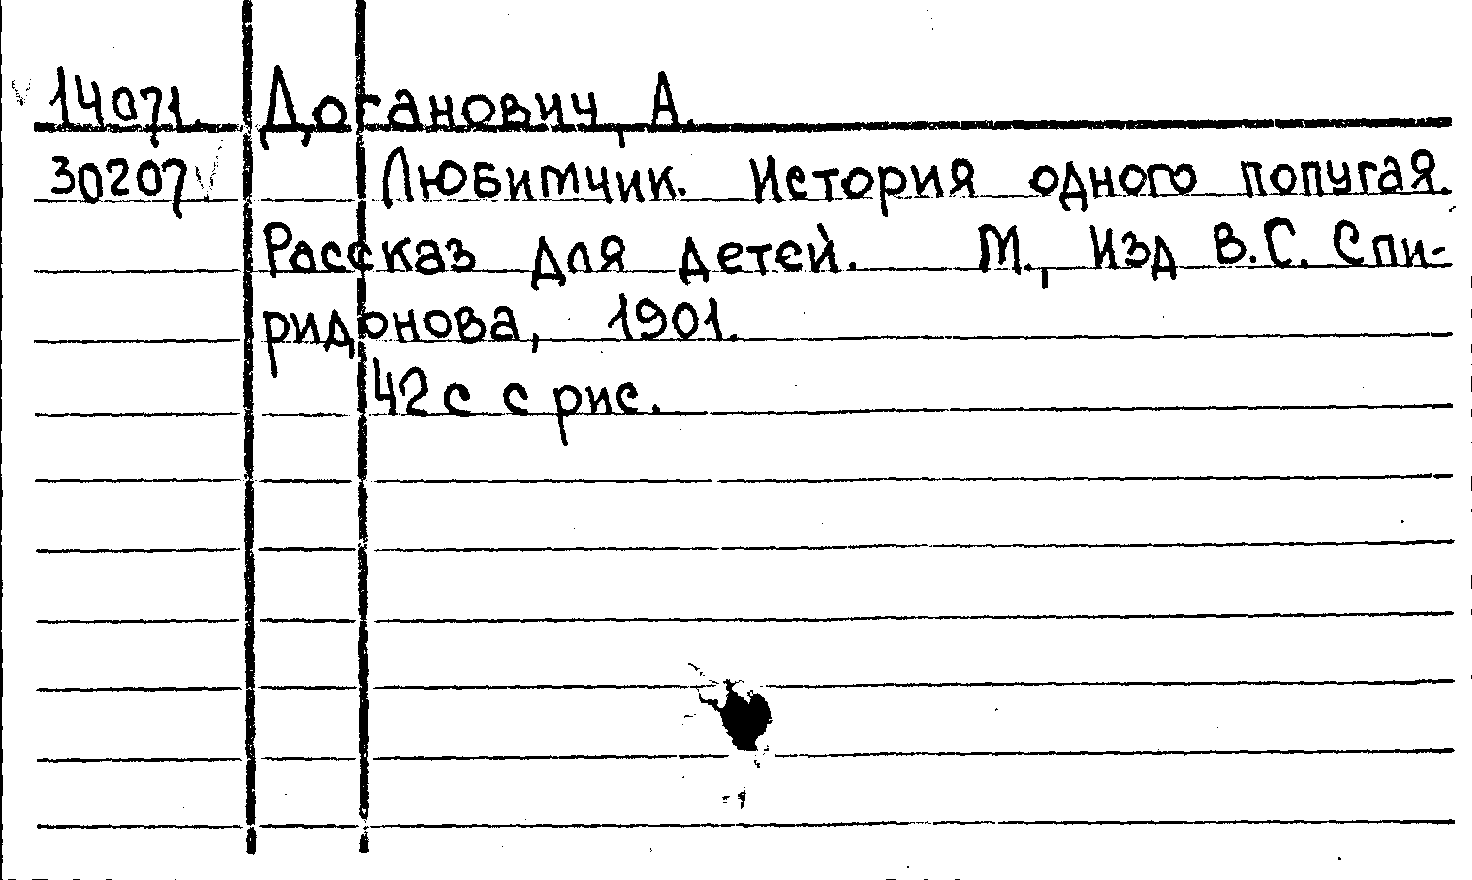 14071. Доганович, А.
30207 Любимчик. История одного попугая.
Рассказ для детей. М., Изд В.С. Спи-
ридонова, 1901.
42 с с рис.